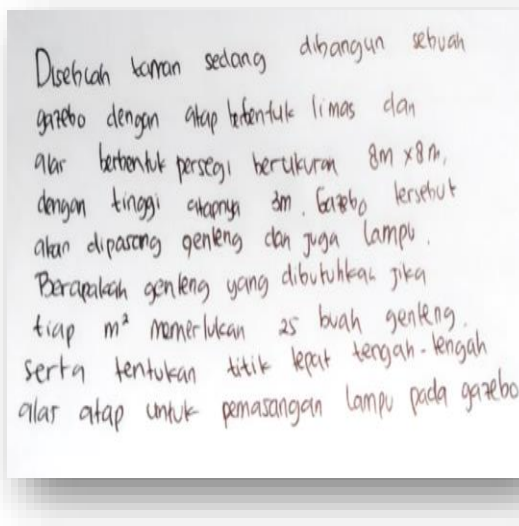 Disebuah taman sedang dibangun sebuah
gazebo dengan atap berbentuk limas dan
alas berbentuk persegi berukuran 8m x 8m,
dengan tinggi atapnya 3m. Gazebo tersebut
akan dipasang genteng dan juga lampu.
Berapakah genteng yang dibutuhkan jika
tiap m² memerlukan 25 buah genteng.
serta tentukan titik tepat tengah-tengah
alas atap untuk pemasangan lampu pada gazebo